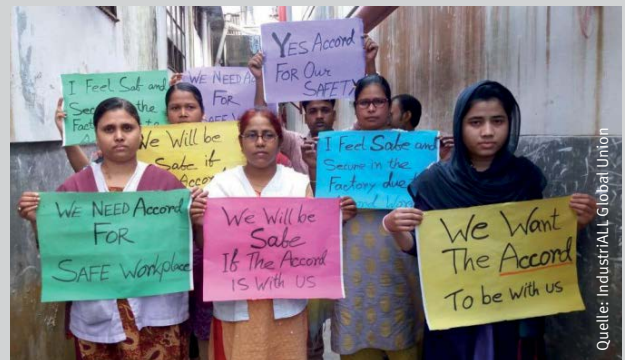 YES Accord
FOR Our
SAFETY
I Feel Saf and
the
to
WE NEED
FOR
We Will be
Safe if
I Feel Safe and
Secure in the
Factory due
WE NEED Accord
FOR
SAFE Workplace
We Will be
Safe
If The Accord
Is With us
We Want
The Accord
To be with us
Quelle: IndustriALL Global Union